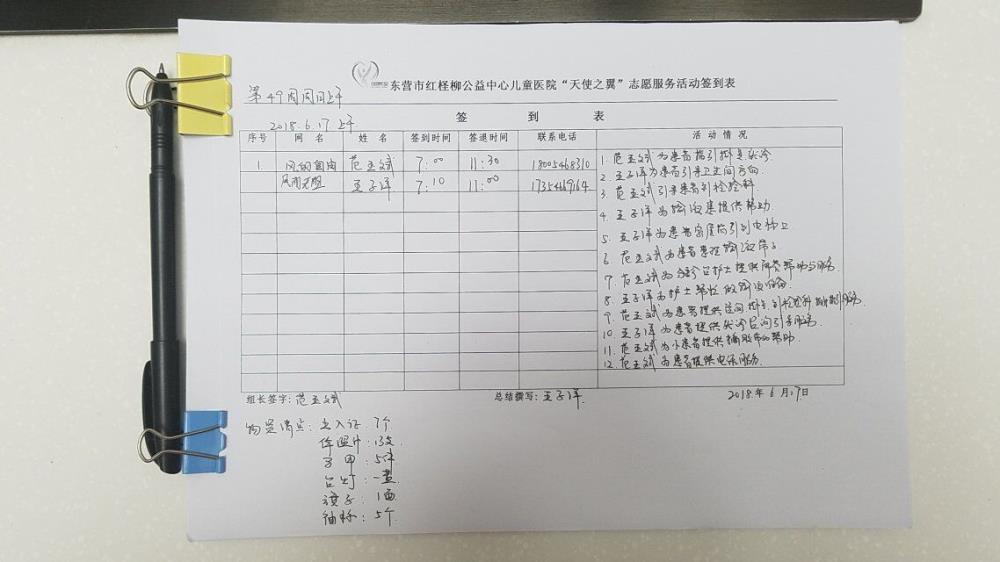 东营市红柽柳公益中心儿童医院“天使之翼”志愿服务活动签到表
第49周周日上午
签 到 表
2018.6.17上午
序号 网 名 姓 名 签到时间 签退时间 联系电话 活 动 情 况
1. 风的自由 范玉斌 7:00 11:30 18005468310
王子洋 7:10 11:00 17354669164
1. 范玉斌为患者指引挂号处
2. 王子洋为患者引导卫生间方向
3. 范玉斌引导患者到检验科
4. 王子洋为输液患提供帮助
5. 王子洋为患者家属指引到电梯口
6. 范玉斌为患者整理输液
7. 范玉斌为分诊台护士提供帮助与服务
8. 王子洋为护士帮忙做
9. 范玉斌为患者提供 到检验科 服务
10. 王子洋为患者提供 引导服务
11. 范玉斌为小患者提供 帮助
12. 范玉斌为患者提供 服务
组长签字：范玉斌 总结撰写：王子洋 2018.年 6 月 17 日
物资清点：出入证 7个
13支
马甲：5件
台灯：一盏
镜子：1面
袖标：5个